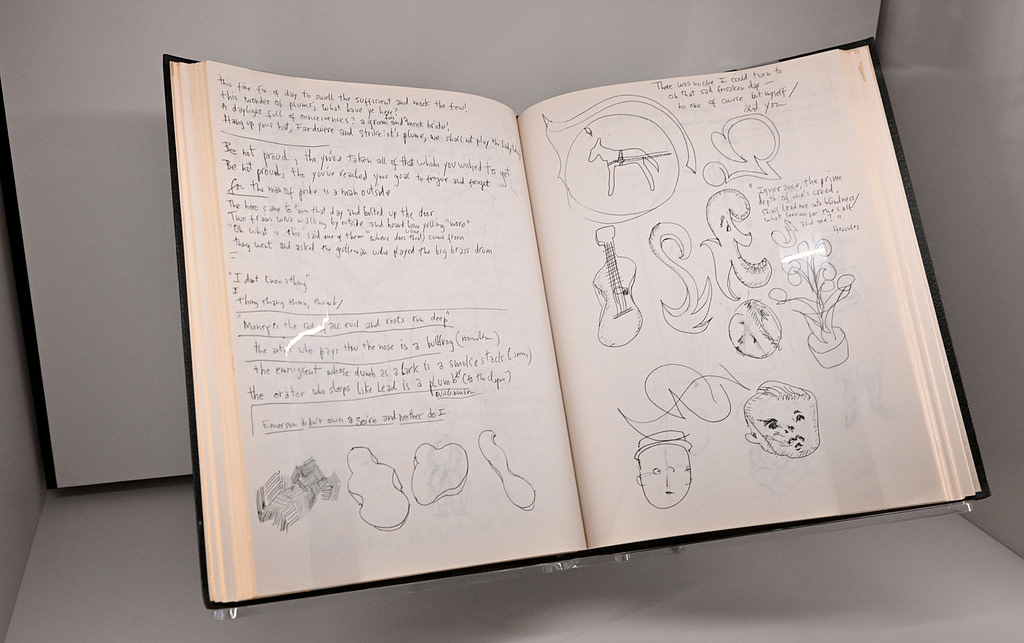 this fine fin of day to swell the sufficient and mock the few!
this wonder of plums, what have ye here?
A daylight full of conceivences? a groom and meek bride!
Hang up your hat, Fardwere and strike it's plume, we shall not play the
Be not proud, tho you've taken all of that which you wished to get
Be not proud, tho you've reached your goal to forgive and forget
for the man of pride is a man outside
The hobo came to town that day and bolted up the door
Two were walking by outside and heard him yelling "more"
"Oh what is this" said one of them "where does that come from
they went and asked the gentleman who played the big brass drum
"I dont know a thing"
I
thing thang
"Money is the evil and roots run deep"
the who pays thru the nose is a bullring
the emmigrent whose dumb as a lark is a smokestack
the orator who sleeps like Lead is a plumb (to the
Emerson didn't own a and neither do I
There was no one I could turn to
Oh that sad forsaken day —
no one of course but myself/
and you
"Ignorance, the prison
depth of one's creed,
Shall lead me into blindness/
what for the call/
of and me?"
Hercules